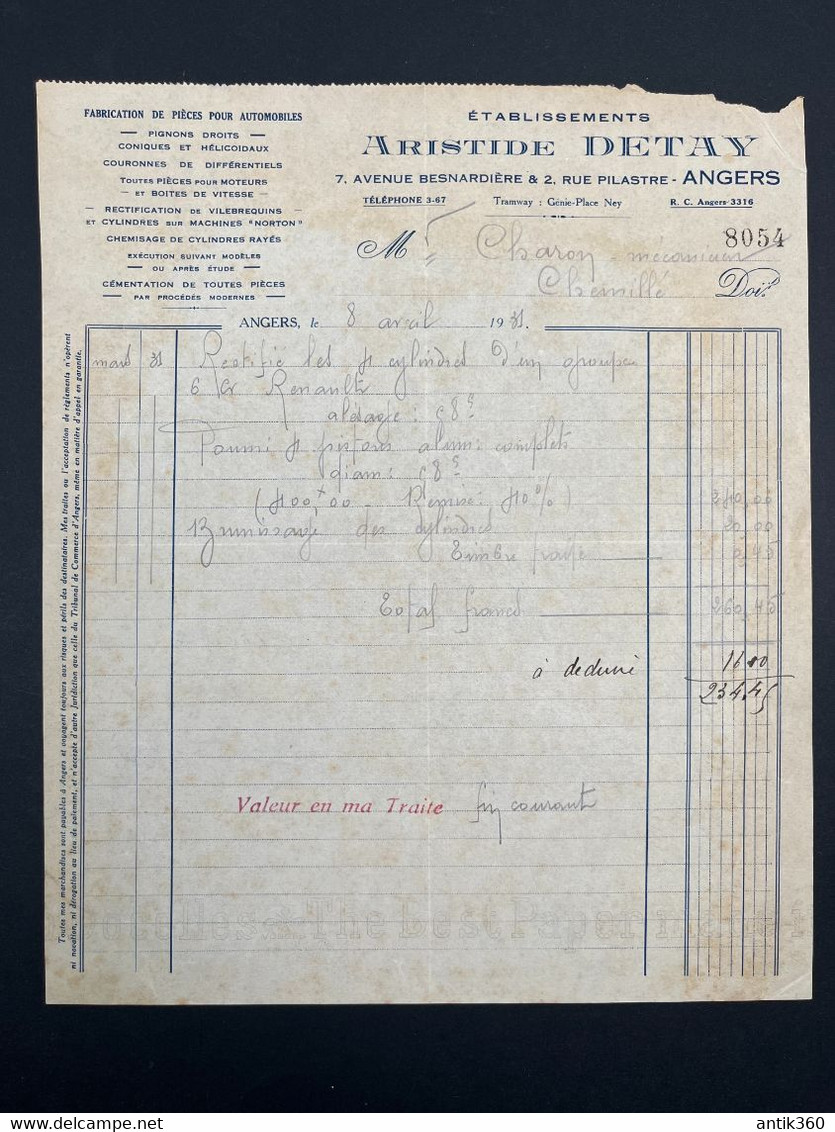 FABRICATION DE PIÈCES POUR AUTOMOBILES
PIGNONS DROITS
CONIQUES ET HÉLICOIDAUX
COURONNES DE DIFFÉRENTIELS
TOUTES PIÈCES POUR MOTEURS
ET BOITES DE VITESSE
RECTIFICATION DE VILEBREQUINS
ET CYLINDRES SUR MACHINES "NORTON"
CHEMISAGE DE CYLINDRES RAYÉS
EXÉCUTION SUIVANT MODÈLES
OU APRÈS ÉTUDE
CÉMENTATION DE TOUTES PIÈCES
PAR PROCÉDÉS MODERNES
ÉTABLISSEMENTS
ARISTIDE DETAY
7, AVENUE BESNARDIÈRE & 2, RUE PILASTRE - ANGERS
TÉLÉPHONE 3-67 Tramway : Génie-Place Ney R. C. Angers 3316
8054
M Charon - mécanicien
Chemillé Doit
ANGERS, le 8 avril 1931.
mars 31 Rectifié les 4 cylindres d'un groupe
6 Cv Renault
alésage :
Fourni 4 pistons alum: complets
diam:
(400,00 - Remise: 40%) 240,00
Brunissage des cylindres 20,00
Timbre traite 0,45
Total francs 260,45
à deduire
234.45
Valeur en ma Traite fin courant
Toutes mes marchandises sont payables à Angers et voyagent toujours aux risques et périls des destinataires. Mes traites ou l'acceptation de règlements n'opèrent
ni novation, ni dérogation au lieu de paiement, et n'accepte d'autre juridiction que celle du Tribunal de Commerce d'Angers, même en matière d'appel en garantie.
The Best Paper
antik360